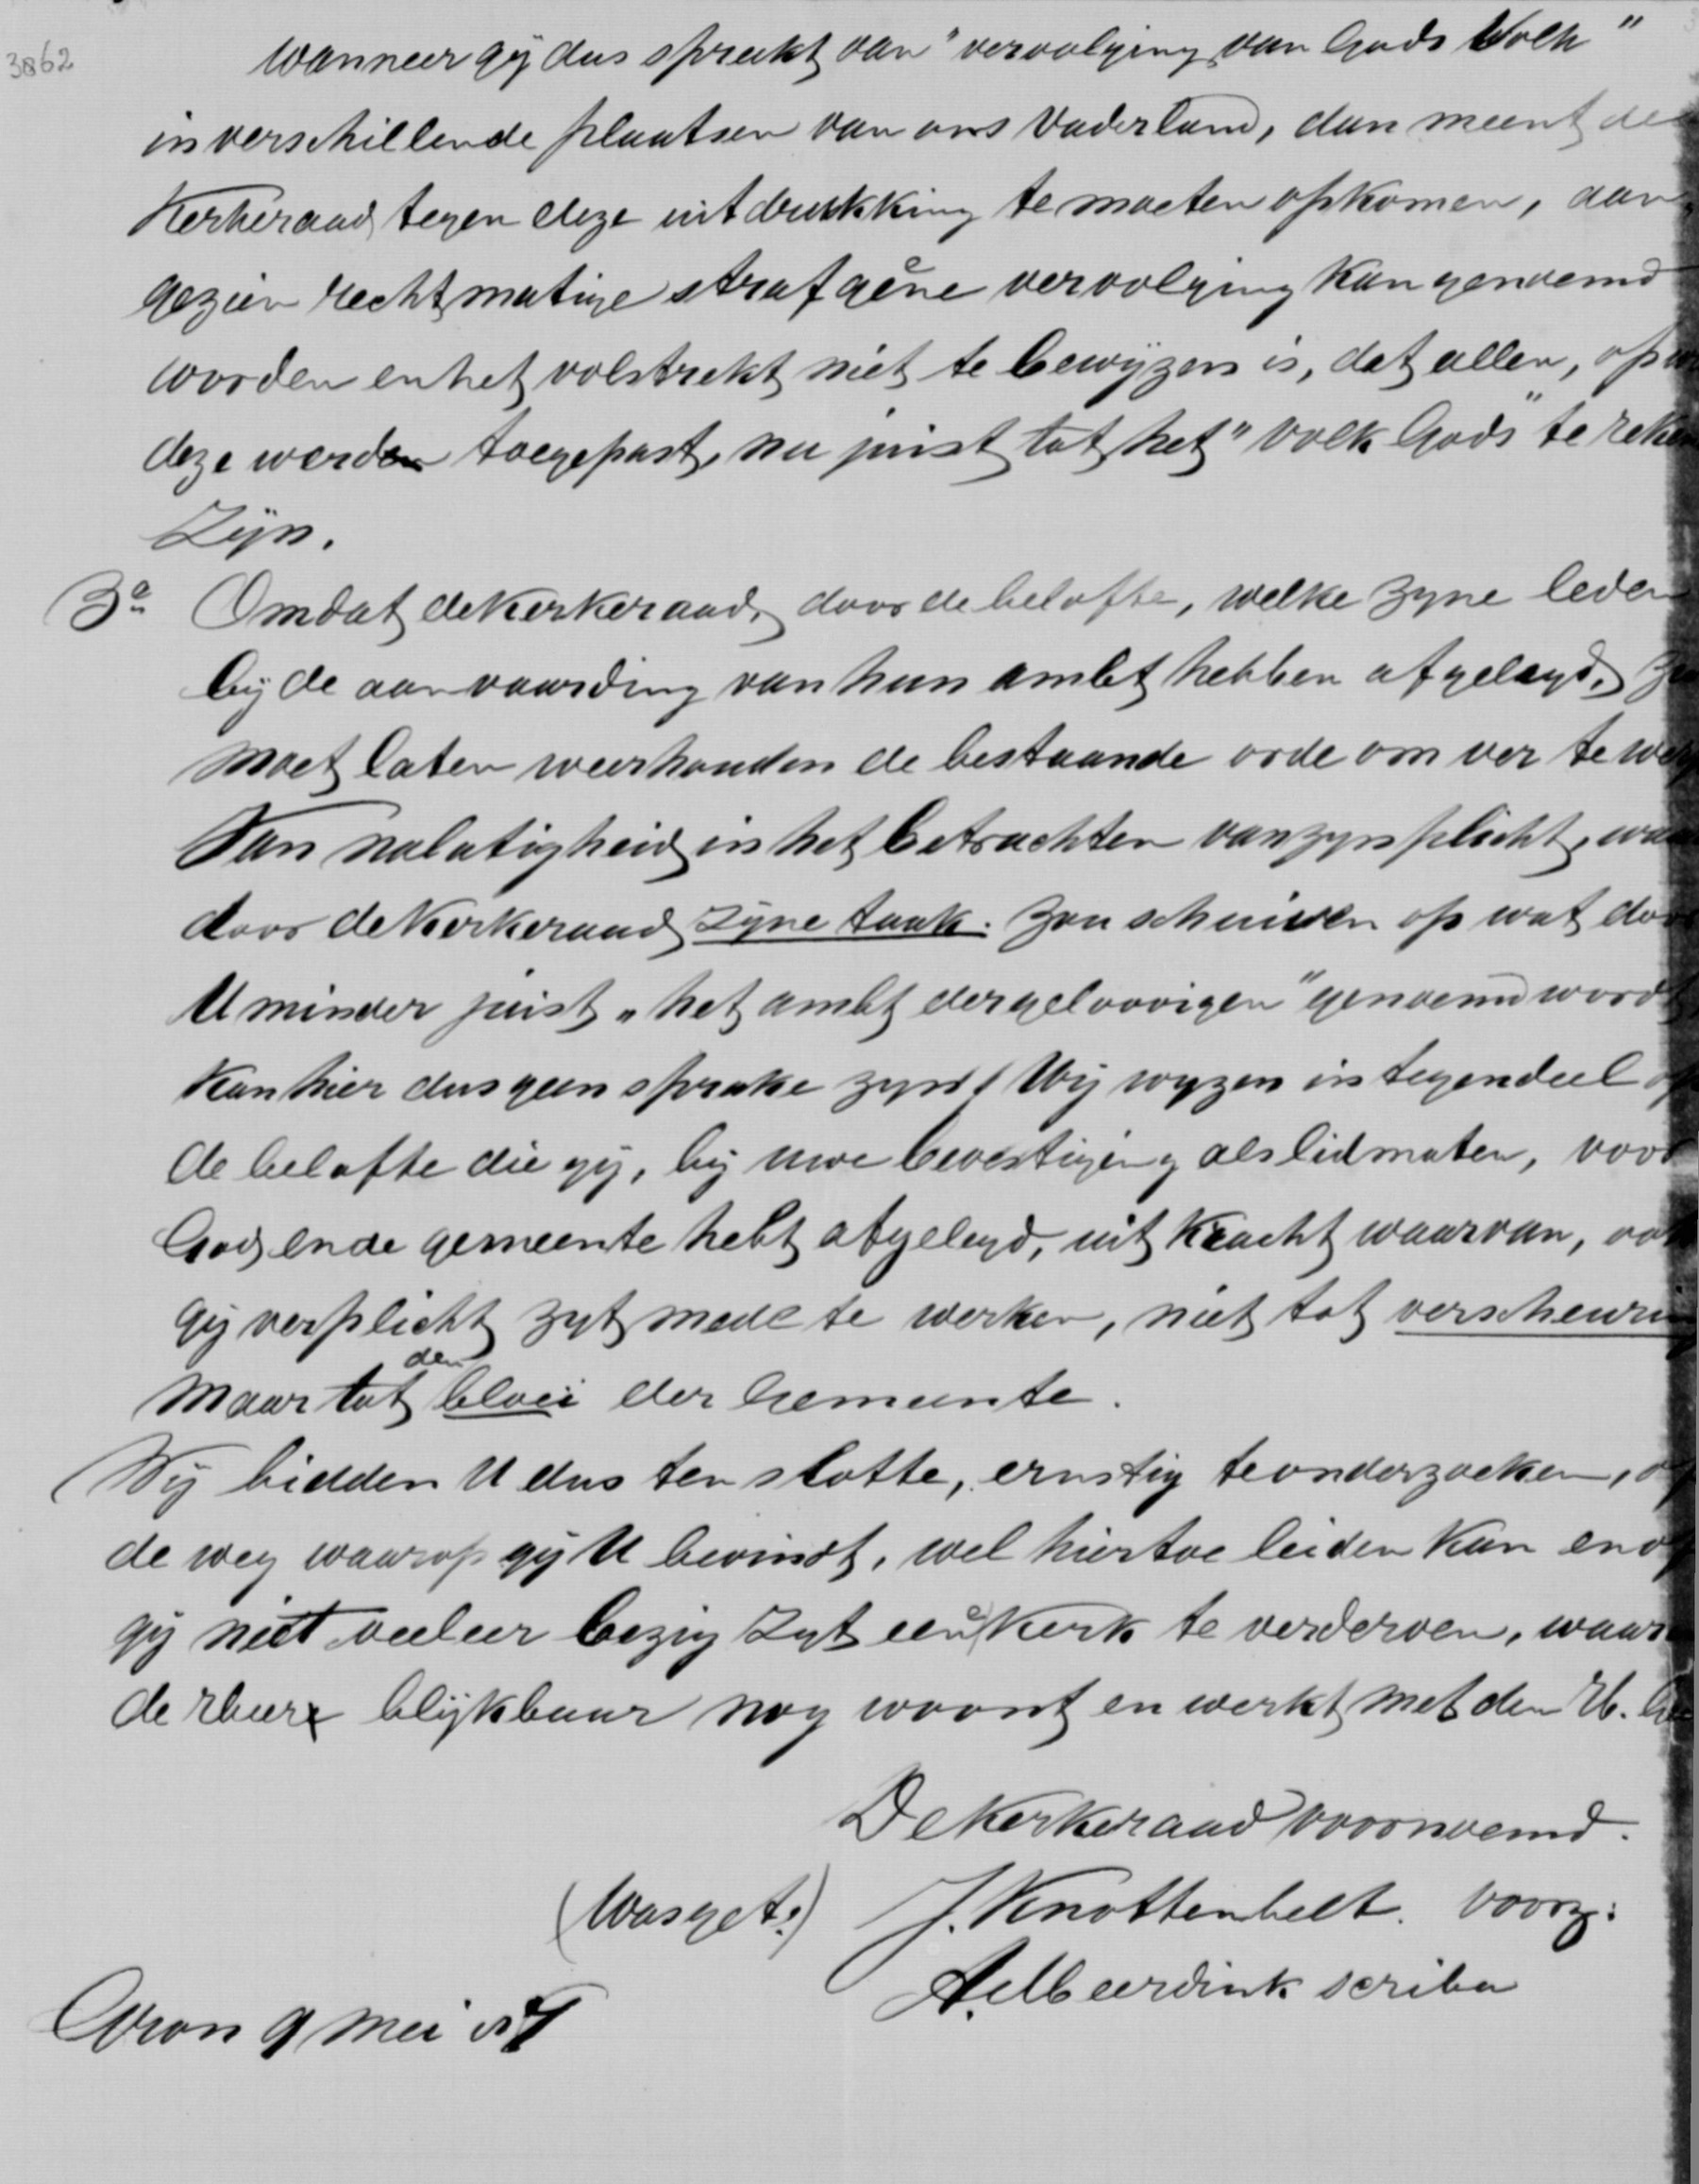 3862
Wanneer gij dus spreekt van "vervolging van Gods Volk"
in verschillende plaatsen van ons Vaderland, dan meent de
Kerkeraad tegen deze uitdrukking te moeten opkomen, aan
gezien rechtmatige straf geene vervolging kan genoemd
worden en het volstrekt niet te bewijzen is, dat allen, op
deze werden toegepast, nu juist tot het "volk Gods" te reken
zijn.
3o Omdat de Kerkeraad, door de belofte, welke zyne leden
bij de aanvaarding van hun ambt hebben afgelegd,
moet laten weerhouden de bestaande orde om ver te
Van nalatigheid in het betrachten van zyn plicht,
door de Kerkeraad zijne taak. zou schuiven op wat door
U minder juist "het ambt der geloovigen" genoemd wordt
kan hier dus geen sprake zyn! Wij wyzen in tegendeel op
de belofte die gij, bij uwe bevestiging als lidmaten, voor
God en de gemeente hebt afgelegd, uit kracht waarvan, ook
gij verplicht zyt mede te werken, niet tot verscheuring
maar tot den bloei der Gemeente.
Wij bidden U dus ten slotte, ernstig te onderzoeken, of
de weg waarop gij U bevindt, wel hiertoe leiden kan en of
gij niet veeleer bezig zyt eene Kerk te verderven, waar
de Heere blijkbaar nog woont en werkt met den H.
De Kerkeraad voornoemd.
(Was get:) J. Knottenbelt. voorz:
A. Meerdink scriba
9 mei